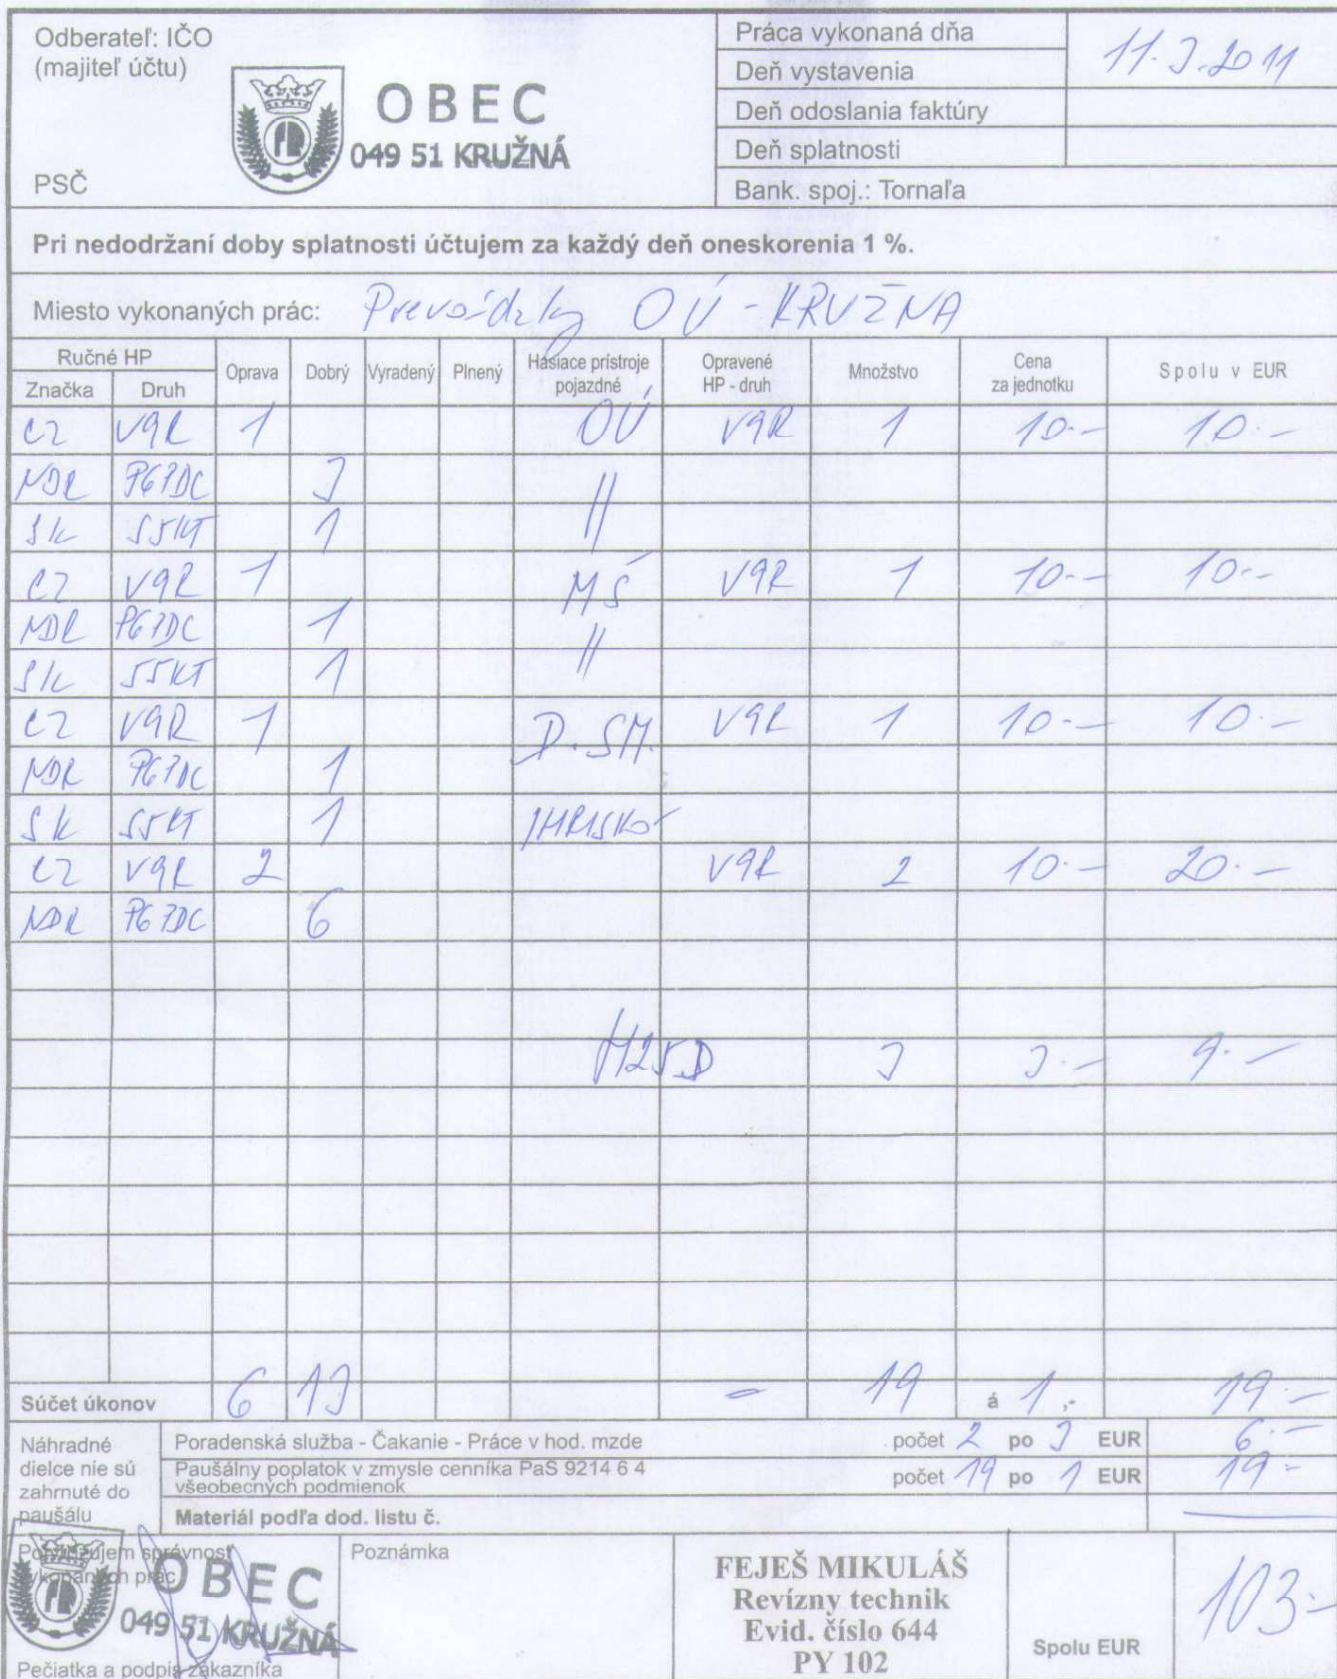 Odberateľ: IČO
(majiteľ účtu)
OBEC
049 51 KRUŽNÁ
PSČ
Práca vykonaná dňa 11.3.2011
Deň vystavenia
Deň odoslania faktúry
Deň splatnosti
Bank. spoj.: Tornaľa
Pri nedodržaní doby splatnosti účtujem za každý deň oneskorenia 1 %.
Miesto vykonaných prác: Prevádzky OÚ - KRUŽNA
Ručné HP Oprava Dobrý Vyradený Plnený Hasiace prístroje pojazdné Opravené HP - druh Množstvo Cena za jednotku Spolu v EUR
Značka Druh
CZ V9R 1 OÚ V9R 1 10.- 10.-
NDR PG7DC 3 //
SK S5KT 1
CZ V9R 1 MŠ V9R 1 10.-- 10.--
NDR PG7DC 1 //
SK S5KT 1
CZ V9R 1 D.SM. V9R 1 10.- 10.-
NDR PG7DC 1
SK S5KT 1 IHRISKO
CZ V9R 2 V9R 2 10.- 20.-
NDR PG7DC 6
H25D 3 3.- 9.-
Súčet úkonov 6 13 - 19 á 1 ,- 19.-
Náhradné dielce nie sú zahrnuté do paušálu
Poradenská služba - Čakanie - Práce v hod. mzde počet 2 po 3 EUR 6.-
Paušálny poplatok v zmysle cenníka PaS 9214 6 4
všeobecných podmienok počet 19 po 1 EUR 19.-
Materiál podľa dod. listu č.
Potvrdzujem správnosť
vykonaných prác
OBEC
049 51 KRUŽNÁ
Pečiatka a podpis zákazníka
Poznámka
FEJEŠ MIKULÁŠ
Revízny technik
Evid. číslo 644
PY 102
Spolu EUR 103.-